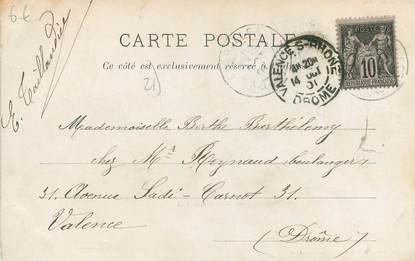 6€
E. Taillandier
CARTE POSTALE
Ce côté est exclusivement réservé à l'adresse
21)
VALENCE-S-RHONE
14 OCT
01
DROME
POSTE
10
REPUBLIQUE FRANCAISE
Mademoiselle Berthe Berthélemy
chez Mr Reynaud boulanger
31. Avenue Sadi-Carnot 31.
Valence
(Drôme)